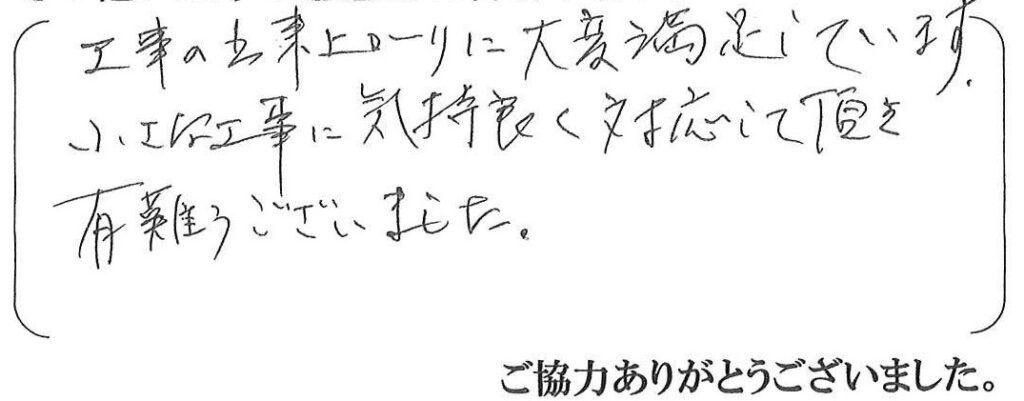 工事の出来上がりに大変満足しています。
小さな工事に気持良く対応して頂き
有難うございました。
ご協力ありがとうございました。